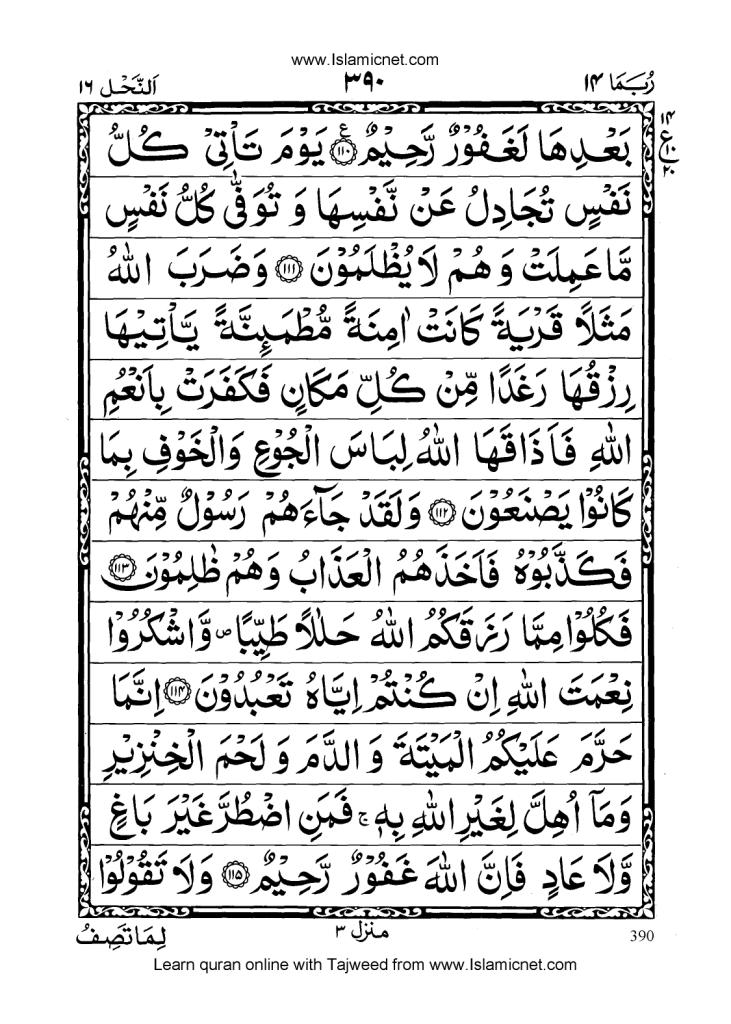 www.Islamicnet.com
رُبَمَا ١٤
٣٩٠
اَلنَّحْل ١٦
١٤
ع
١٠
٢٠
بَعْدِهَا لَغَفُوْرٌ رَّحِيْمٌ ﴿١١٠﴾ ع يَوْمَ تَاْتِيْ كُلُّ
نَفْسٍ تُجَادِلُ عَنْ نَّفْسِهَا وَ تُوَفّٰى كُلُّ نَفْسٍ
مَّا عَمِلَتْ وَ هُمْ لَا يُظْلَمُوْنَ ﴿١١١﴾ وَ ضَرَبَ اللّٰهُ
مَثَلًا قَرْيَةً كَانَتْ اٰمِنَةً مُّطْمَىِٕنَّةً يَّاْتِيْهَا
رِزْقُهَا رَغَدًا مِّنْ كُلِّ مَكَانٍ فَكَفَرَتْ بِاَنْعُمِ
اللّٰهِ فَاَذَاقَهَا اللّٰهُ لِبَاسَ الْجُوْعِ وَالْخَوْفِ بِمَا
كَانُوْا يَصْنَعُوْنَ ﴿١١٢﴾ وَلَقَدْ جَآءَهُمْ رَسُوْلٌ مِّنْهُمْ
فَكَذَّبُوْهُ فَاَخَذَهُمُ الْعَذَابُ وَهُمْ ظٰلِمُوْنَ ﴿١١٣﴾
فَكُلُوْا مِمَّا رَزَقَكُمُ اللّٰهُ حَلٰلًا طَيِّبًا ۪ وَّاشْكُرُوْا
نِعْمَتَ اللّٰهِ اِنْ كُنْتُمْ اِيَّاهُ تَعْبُدُوْنَ ﴿١١٤﴾ اِنَّمَا
حَرَّمَ عَلَيْكُمُ الْمَيْتَةَ وَ الدَّمَ وَ لَحْمَ الْخِنْزِيْرِ
وَمَاۤ اُهِلَّ لِغَيْرِ اللّٰهِ بِهٖ ۚ فَمَنِ اضْطُرَّ غَيْرَ بَاغٍ
وَّلَا عَادٍ فَاِنَّ اللّٰهَ غَفُوْرٌ رَّحِيْمٌ ﴿١١٥﴾ وَلَا تَقُوْلُوْا
390
منزل ٣
لِمَا تَصِفُ
Learn quran online with Tajweed from www.Islamicnet.com